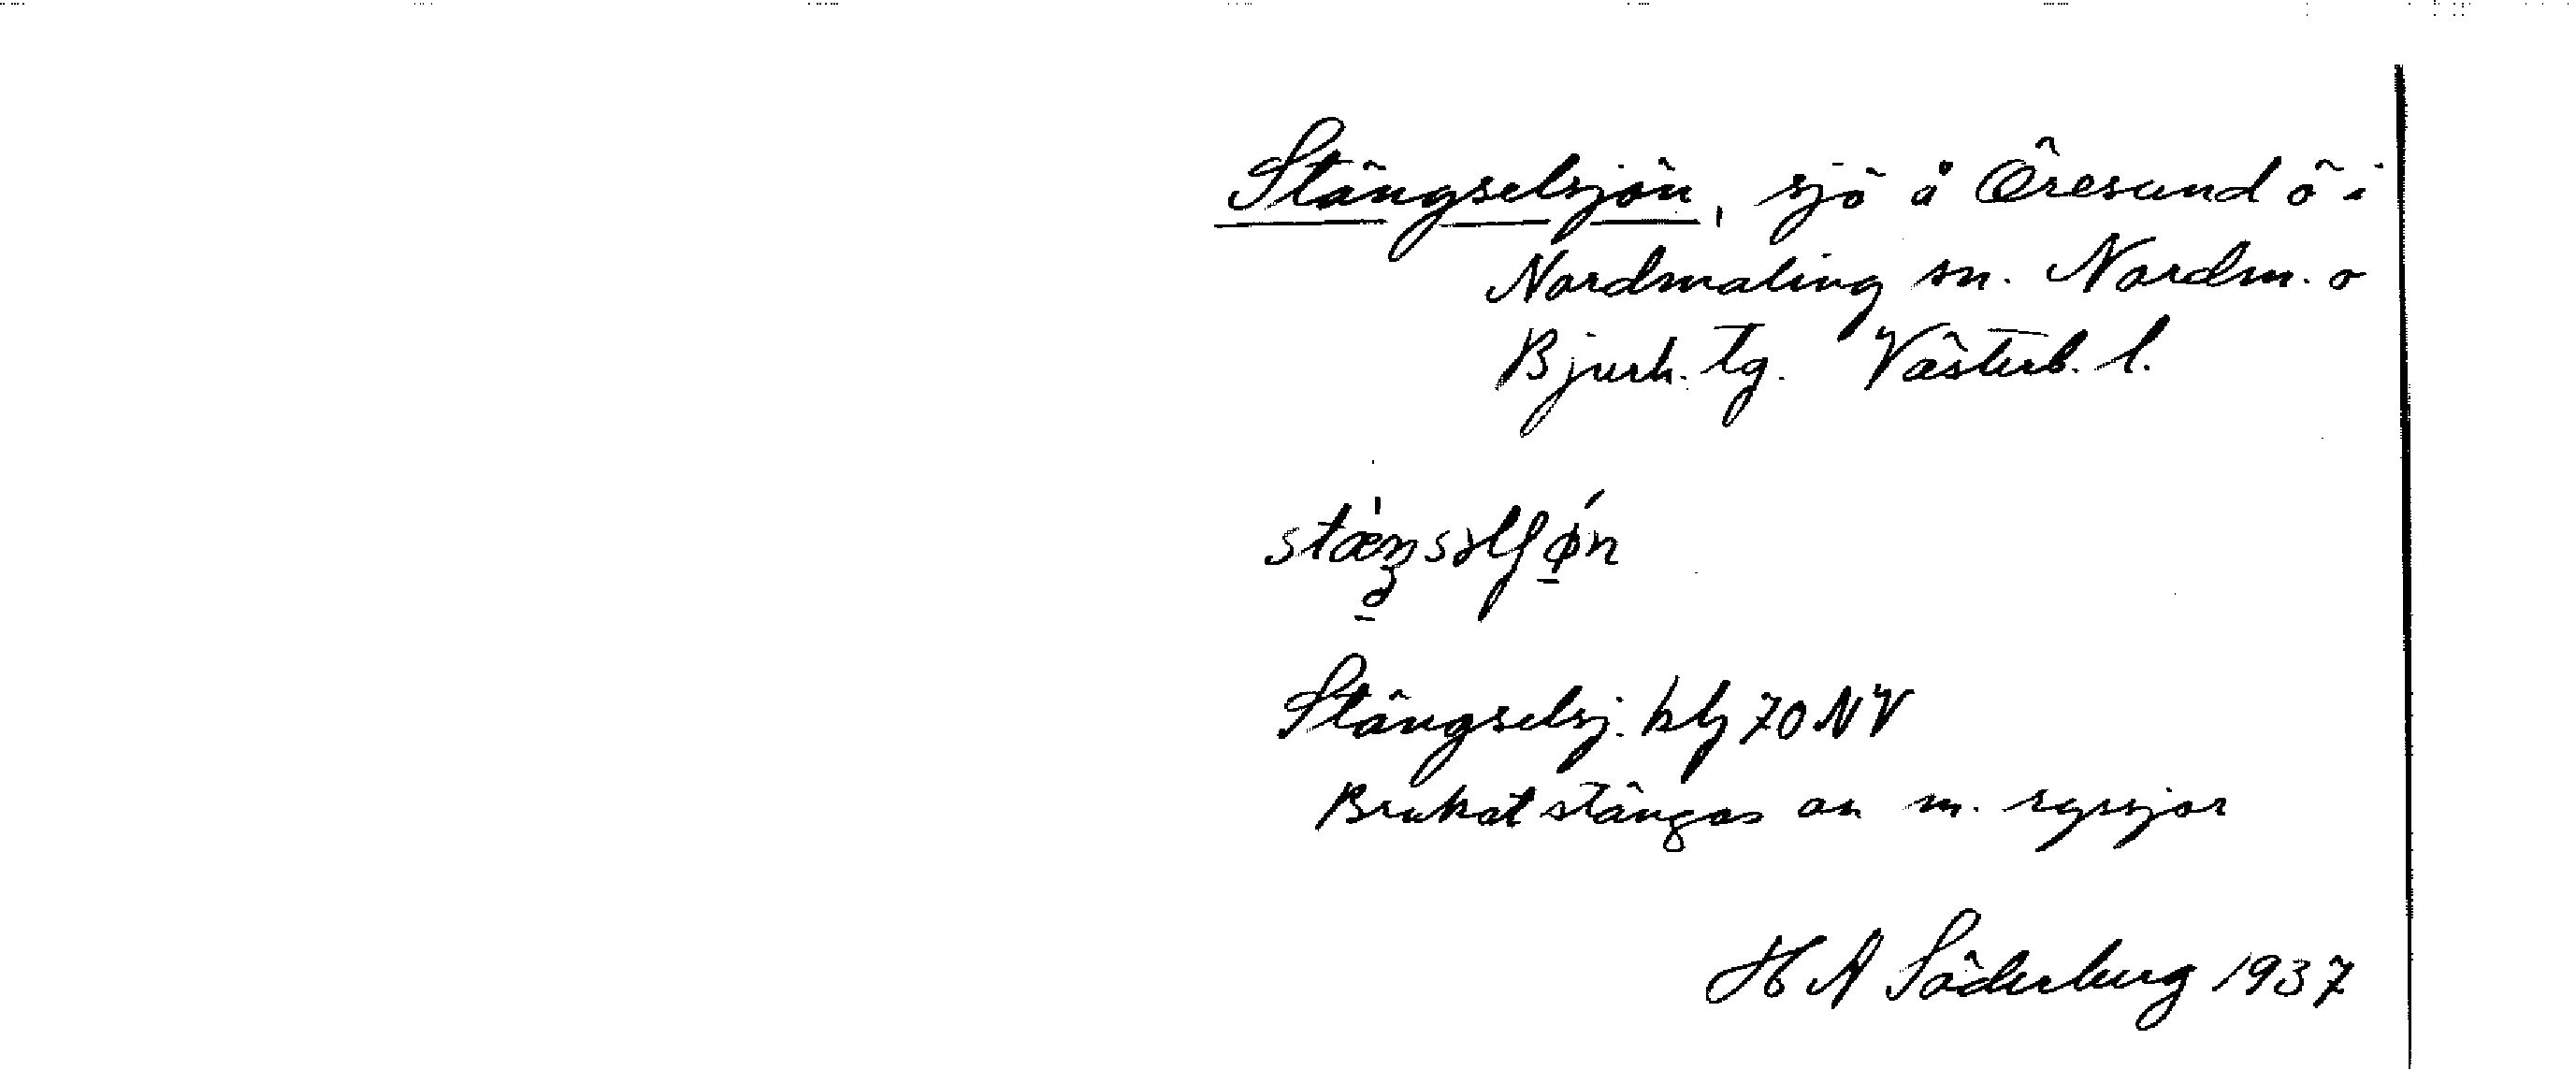 Stängselsjön, sjö å Öresund ö i
Nordmaling sn. Nordm. o
Bjurh. tg. Västerb. l.
Stängselsj. blj 70 NV
Brukat stängas av m. ryssjor
H A Söderberg 1937